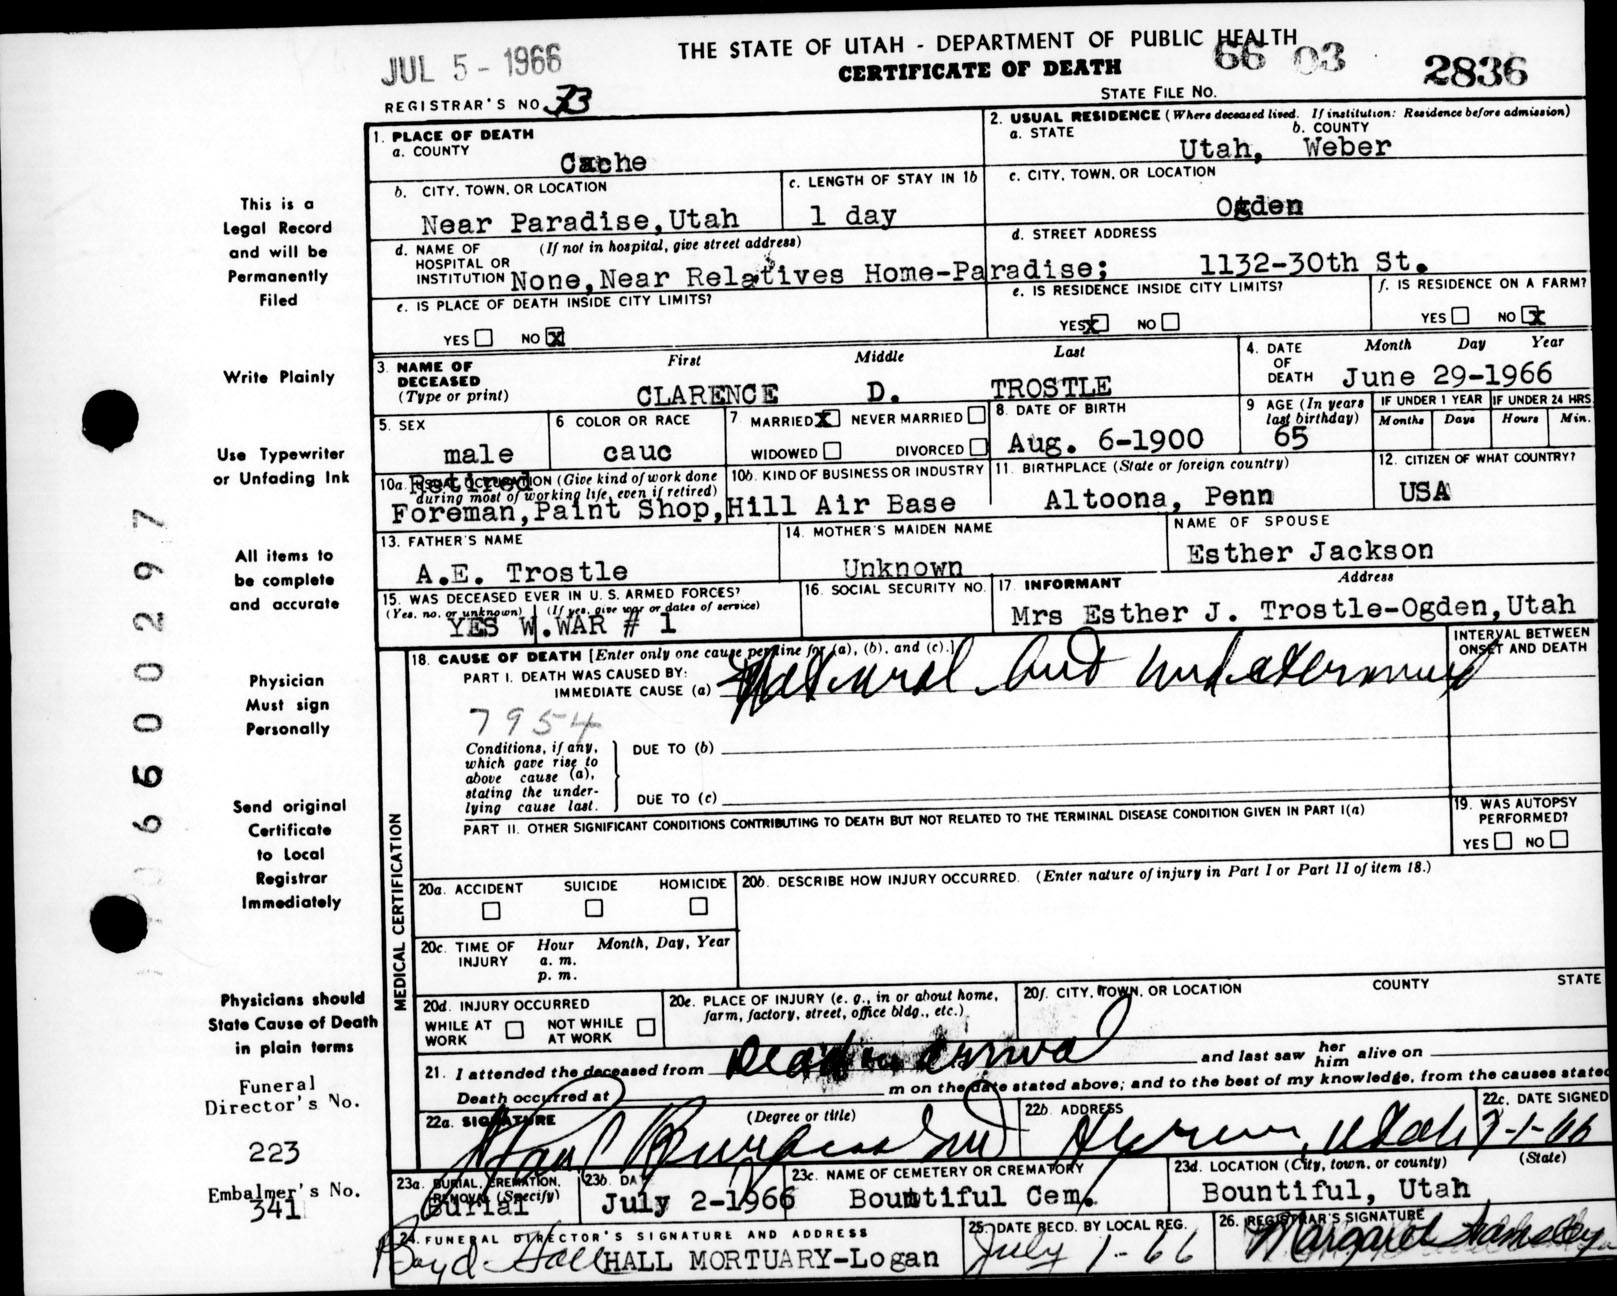 JUL 5 - 1966
THE STATE OF UTAH - DEPARTMENT OF PUBLIC HEALTH
CERTIFICATE OF DEATH
66 03 2836
STATE FILE NO.
REGISTRAR'S NO.
This is a
Legal Record
and will be
Permanently
Filed
Write Plainly
Use Typewriter
or Unfading Ink
All items to
be complete
and accurate
Physician
Must sign
Personally
Send original
Certificate
to Local
Registrar
Immediately
Physicians should
State Cause of Death
in plain terms
Funeral
Director's No.
223
Embalmer's No.
341
1. PLACE OF DEATH
a. COUNTY
Cache
2. USUAL RESIDENCE (Where deceased lived. If institution: Residence before admission)
a. STATE b. COUNTY
Utah, Weber
b. CITY, TOWN, OR LOCATION
Near Paradise, Utah
c. LENGTH OF STAY IN 1b
1 day
c. CITY, TOWN, OR LOCATION
Ogden
d. NAME OF (If not in hospital, give street address)
HOSPITAL OR
INSTITUTION None, Near Relatives Home-Paradise;
d. STREET ADDRESS
1132-30th St.
e. IS PLACE OF DEATH INSIDE CITY LIMITS?
YES NO X
e. IS RESIDENCE INSIDE CITY LIMITS?
YES X NO
f. IS RESIDENCE ON A FARM?
YES NO X
3. NAME OF
DECEASED
(Type or print)
First Middle Last
CLARENCE D. TROSTLE
4. DATE
OF
DEATH
Month Day Year
June 29-1966
5. SEX
male
6 COLOR OR RACE
cauc
7 MARRIED X NEVER MARRIED
WIDOWED DIVORCED
8. DATE OF BIRTH
Aug. 6-1900
9 AGE (In years
last birthday)
65
IF UNDER 1 YEAR IF UNDER 24 HRS.
Months Days Hours Min.
10a. USUAL OCCUPATION (Give kind of work done
during most of working life, even if retired)
Retired
Foreman, Paint Shop,
10b. KIND OF BUSINESS OR INDUSTRY
Hill Air Base
11. BIRTHPLACE (State or foreign country)
Altoona, Penn
12. CITIZEN OF WHAT COUNTRY?
USA
13. FATHER'S NAME
A.E. Trostle
14. MOTHER'S MAIDEN NAME
Unknown
NAME OF SPOUSE
Esther Jackson
15. WAS DECEASED EVER IN U. S. ARMED FORCES?
(Yes, no, or unknown) (If yes, give war or dates of service)
YES W.WAR # 1
16. SOCIAL SECURITY NO.
17. INFORMANT Address
Mrs Esther J. Trostle-Ogden, Utah
MEDICAL CERTIFICATION
18. CAUSE OF DEATH [Enter only one cause per line for (a), (b), and (c).]
INTERVAL BETWEEN
ONSET AND DEATH
PART I. DEATH WAS CAUSED BY:
IMMEDIATE CAUSE (a) Natural but undetermined
7954
Conditions, if any,
which gave rise to
above cause (a),
stating the under-
lying cause last.
DUE TO (b)
DUE TO (c)
PART II. OTHER SIGNIFICANT CONDITIONS CONTRIBUTING TO DEATH BUT NOT RELATED TO THE TERMINAL DISEASE CONDITION GIVEN IN PART I(a)
19. WAS AUTOPSY
PERFORMED?
YES NO
20a. ACCIDENT SUICIDE HOMICIDE
20b. DESCRIBE HOW INJURY OCCURRED. (Enter nature of injury in Part I or Part II of item 18.)
20c. TIME OF Hour Month, Day, Year
INJURY a. m.
p. m.
20d. INJURY OCCURRED
WHILE AT WORK NOT WHILE AT WORK
20e. PLACE OF INJURY (e. g., in or about home,
farm, factory, street, office bldg., etc.)
20f. CITY, TOWN, OR LOCATION COUNTY STATE
21. I attended the deceased from Dead on arrival and last saw her him alive on
Death occurred at m on the date stated above; and to the best of my knowledge, from the causes stated
22a. SIGNATURE (Degree or title)
Paul Burgess MD
22b. ADDRESS
Hyrum, Utah
22c. DATE SIGNED
7-1-66
23a. BURIAL, CREMATION,
REMOVAL (Specify)
Burial
23b. DATE
July 2-1966
23c. NAME OF CEMETERY OR CREMATORY
Bountiful Cem.
23d. LOCATION (City, town, or county) (State)
Bountiful, Utah
24. FUNERAL DIRECTOR'S SIGNATURE AND ADDRESS
Boyd Hall HALL MORTUARY-Logan
25. DATE RECD. BY LOCAL REG.
July 1-66
26. REGISTRAR'S SIGNATURE
Margaret